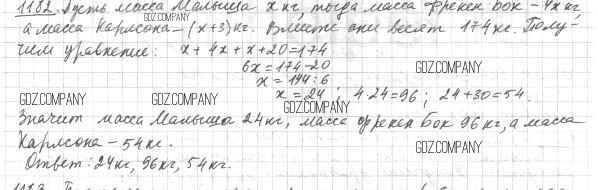 1182. Пусть масса Малыша x кг, тогда масса Фрекен Бок – 4x кг,
GDZ.COMPANY
а масса Карлсона – (x+3) кг. Вместе они весят 174 кг. Полу-
чим уравнение: x + 4x + x + 20 = 174
6x = 174-20
GDZ.COMPANY
x = 144:6
GDZ.COMPANY GDZ.COMPANY x = 24; 4·24=96; 24+30=54.
GDZ.COMPANY
Значит масса Малыша 24 кг, масса Фрекен Бок 96 кг, а масса
Карлсона – 54 кг.
GDZ.COMPANY
Ответ: 24кг, 96кг, 54кг.